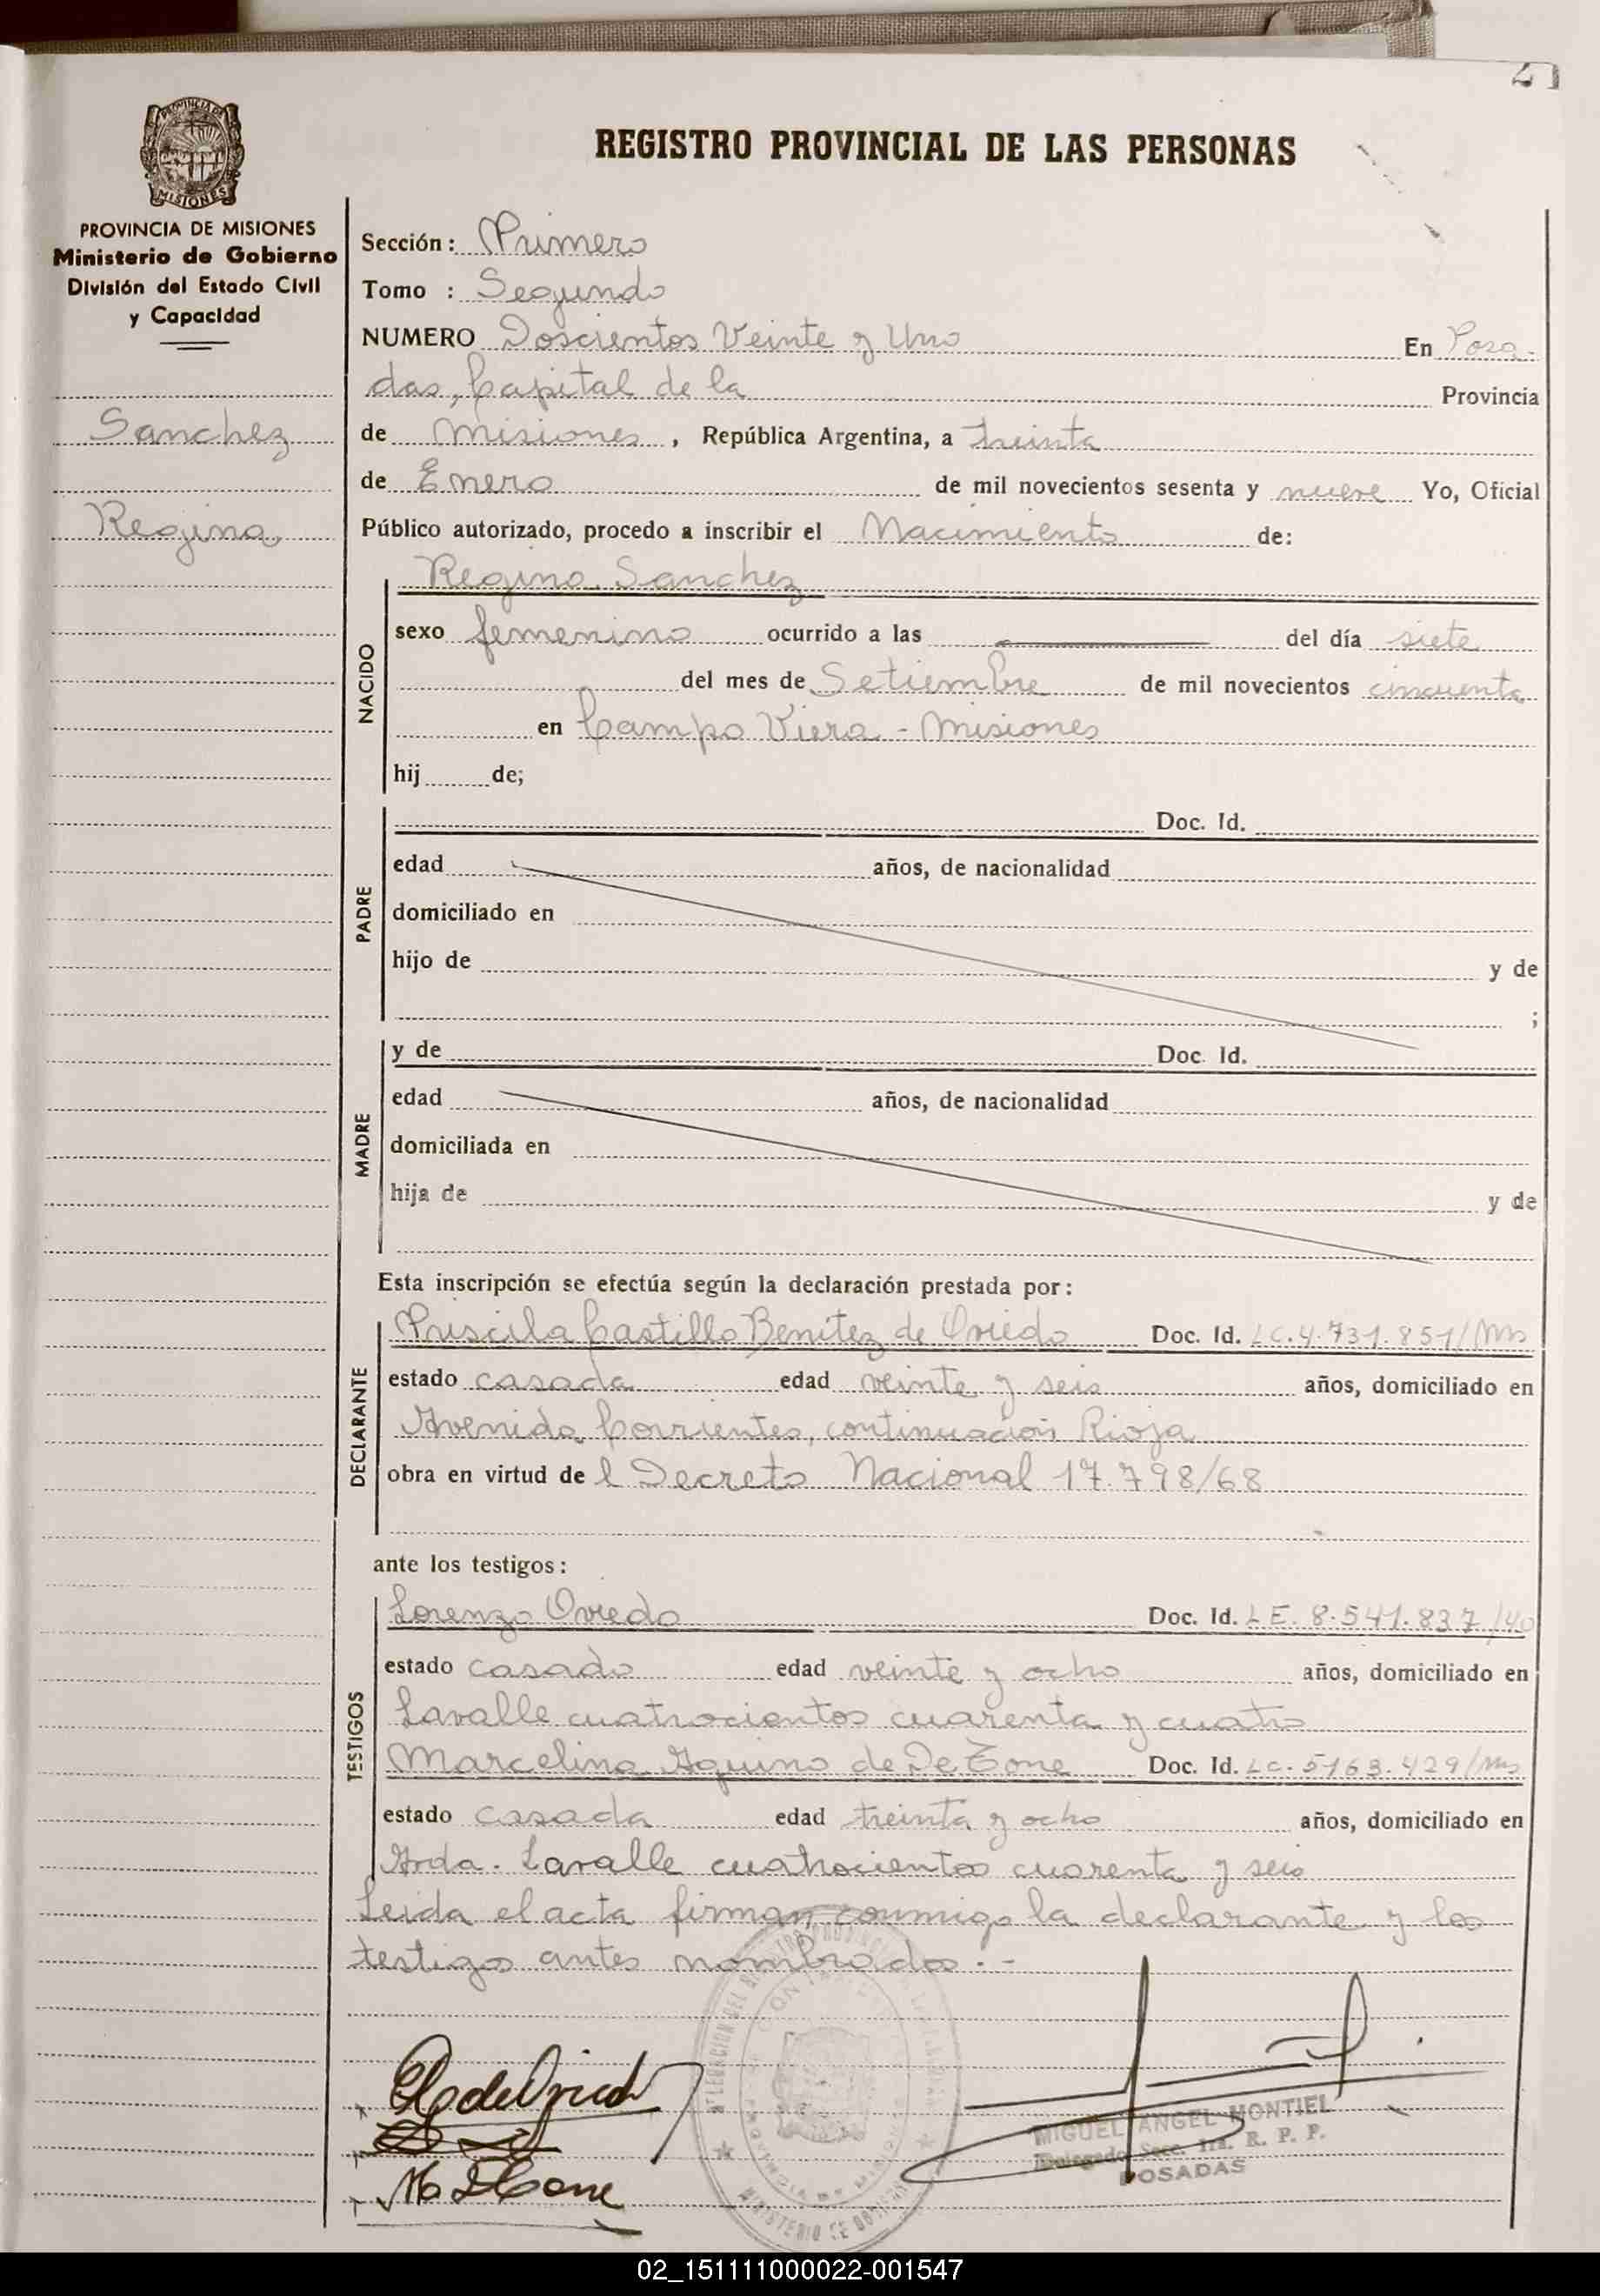 21
REGISTRO PROVINCIAL DE LAS PERSONAS
PROVINCIA DE MISIONES
Ministerio de Gobierno
División del Estado Civil
y Capacidad
Sanchez
Regina
Sección: Primero
Tomo : Segundo
NUMERO Doscientos Veinte y Uno En Posa-
das, Capital de la Provincia
de Misiones, República Argentina, a treinta
de Enero de mil novecientos sesenta y nueve Yo, Oficial
Público autorizado, procedo a inscribir el Nacimiento de:
NACIDO
Regina Sanchez
sexo femenino ocurrido a las del día siete
del mes de Setiembre de mil novecientos cincuenta
en Campo Viera - Misiones
hij de;
PADRE
Doc. Id.
edad años, de nacionalidad
domiciliado en
hijo de y de
;
MADRE
y de Doc. Id.
edad años, de nacionalidad
domiciliada en
hija de y de
Esta inscripción se efectúa según la declaración prestada por:
DECLARANTE
Priscila Castillo Benitez de Oviedo Doc. Id. LC.4.731.851/Ms
estado casada edad veinte y seis años, domiciliado en
Avenida Corrientes, continuación Rioja
obra en virtud de l Decreto Nacional 17.798/68
ante los testigos:
TESTIGOS
Lorenzo Oviedo Doc. Id. LE. 8.541.837/40
estado casado edad veinte y ocho años, domiciliado en
Lavalle cuatrocientos cuarenta y cuatro
Marcelina Aquino de De Tone Doc. Id. LC. 5163.429/Ms
estado casada edad treinta y ocho años, domiciliado en
Avda. Lavalle cuatrocientos cuarenta y seis
Leida el acta firman conmigo la declarante y los
testigos antes nombrados.-
MIGUEL ANGEL MONTIEL
Delegado Secc. 1ra. R. P. P.
POSADAS
02_151111000022-001547